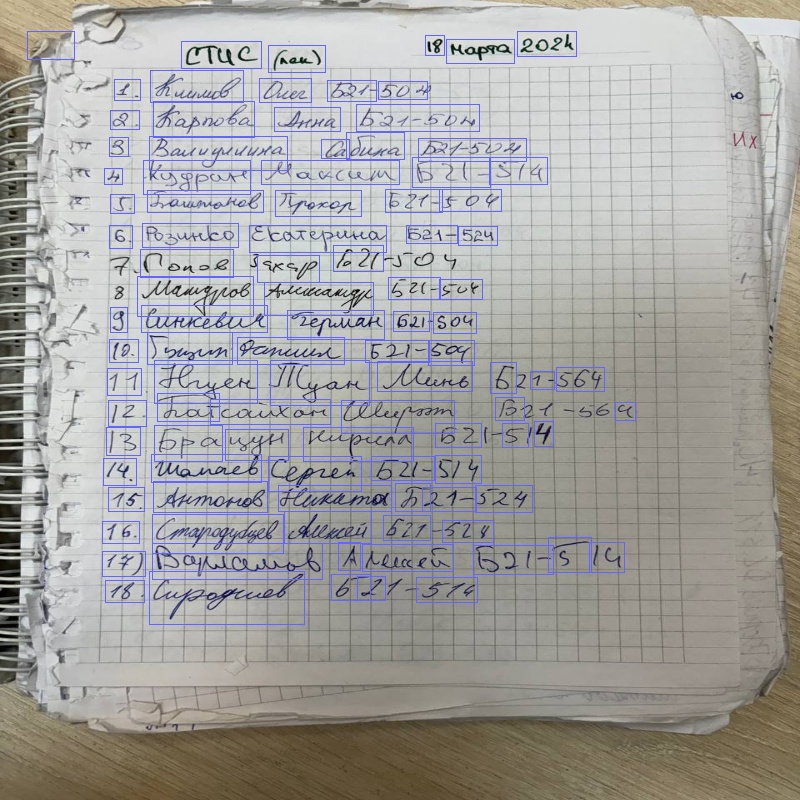 СТИС (лек) 18 марта 2024
1. Климов Олег Б21-504
2. Карпова Анна Б21-504
3 Валиуллина Сабина Б21-504
4 Кудрин Максим Б21-514
5. Баштанов Прохор Б21-504
6. Розинко Екатерина Б21-524
7. Попов Захар Б21-504
8 Александр Б21-504
9 Синкевич Герман Б21-504
10. Б21-504
11 Нгуен Туан Минь Б21-564
12. Батсайхон Б21-564
13 Брацун Кирилл Б21-514
14. Шамаев Сергей Б21-514
15. Антонов Никита Б21-524
16. Стародубцев Алексей Б21-524
17) Варламов Алексей Б21-514
18. Б21-514
Их